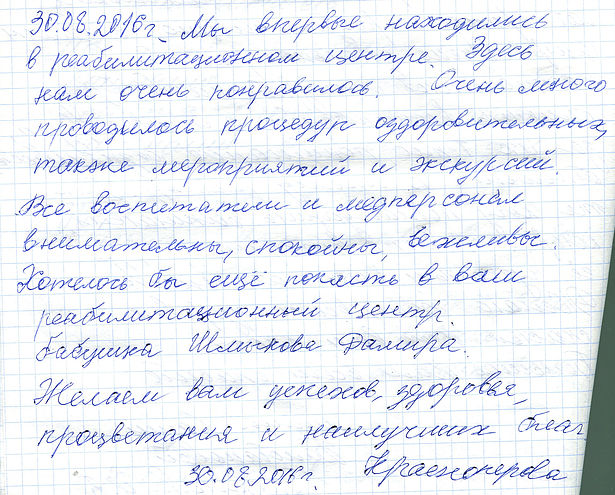 30.08.2016г. Мы впервые находились
в реабилитационном центре. Здесь
нам очень понравилось. Очень много
проводилось процедур оздоровительных,
также мероприятий и экскурсий.
Все воспитатели и медперсонал
внимательны, спокойны, вежливы.
Хотелось бы ещё попасть в ваш
реабилитационный центр.
бабушка Шмыкова Дамира.
Желаем вам успехов, здоровья,
процветания и наилучших благ
30.08.2016г. Красноперова